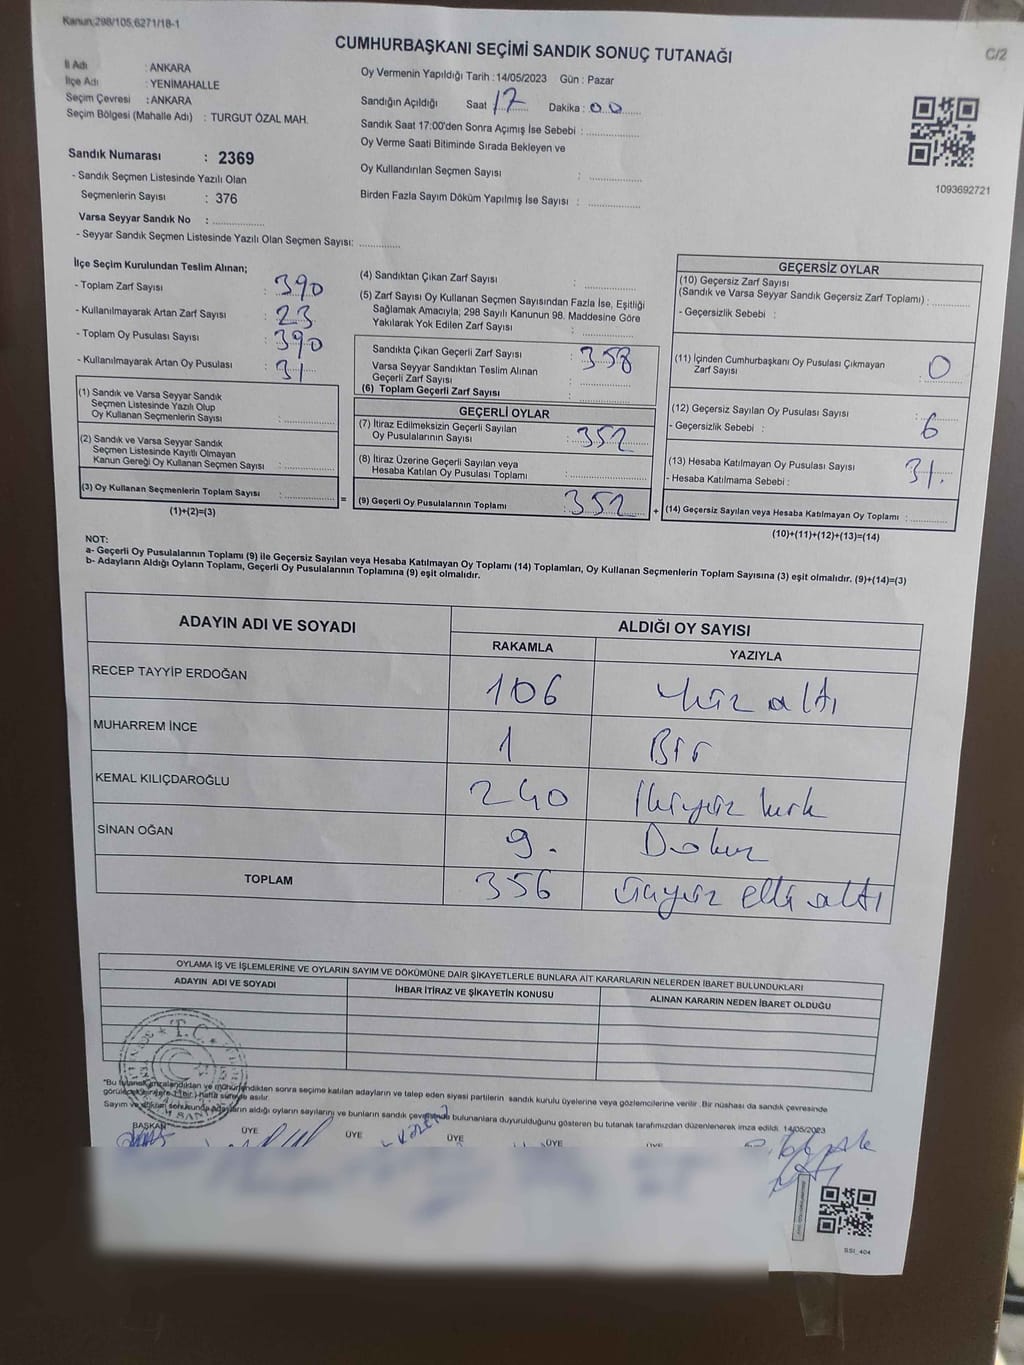 Kanun;298/105,6271/18-1
CUMHURBAŞKANI SEÇİMİ SANDIK SONUÇ TUTANAĞI
C/2
İl Adı : ANKARA
İlçe Adı : YENİMAHALLE
Seçim Çevresi : ANKARA
Seçim Bölgesi (Mahalle Adı) : TURGUT ÖZAL MAH.
Oy Vermenin Yapıldığı Tarih : 14/05/2023 Gün : Pazar
Sandığın Açıldığı Saat 17 Dakika : 00
Sandık Saat 17:00'den Sonra Açımış İse Sebebi :
Oy Verme Saati Bitiminde Sırada Bekleyen ve
Oy Kullandırılan Seçmen Sayısı :
Birden Fazla Sayım Döküm Yapılmış İse Sayısı :
1093692721
Sandık Numarası : 2369
- Sandık Seçmen Listesinde Yazılı Olan
Seçmenlerin Sayısı : 376
Varsa Seyyar Sandık No :
- Seyyar Sandık Seçmen Listesinde Yazılı Olan Seçmen Sayısı:
İlçe Seçim Kurulundan Teslim Alınan;
- Toplam Zarf Sayısı : 390
- Kullanılmayarak Artan Zarf Sayısı : 23
- Toplam Oy Pusulası Sayısı : 390
- Kullanılmayarak Artan Oy Pusulası : 31
(1) Sandık ve Varsa Seyyar Sandık
Seçmen Listesinde Yazılı Olup
Oy Kullanan Seçmenlerin Sayısı :
(2) Sandık ve Varsa Seyyar Sandık
Seçmen Listesinde Kayıtlı Olmayan
Kanun Gereği Oy Kullanan Seçmen Sayısı :
(3) Oy Kullanan Seçmenlerin Toplam Sayısı : =
(1)+(2)=(3)
(4) Sandıktan Çıkan Zarf Sayısı :
(5) Zarf Sayısı Oy Kullanan Seçmen Sayısından Fazla İse, Eşitliği
Sağlamak Amacıyla; 298 Sayılı Kanunun 98. Maddesine Göre
Yakılarak Yok Edilen Zarf Sayısı :
Sandıkta Çıkan Geçerli Zarf Sayısı : 358
Varsa Seyyar Sandıktan Teslim Alınan
Geçerli Zarf Sayısı :
(6) Toplam Geçerli Zarf Sayısı :
GEÇERLİ OYLAR
(7) İtiraz Edilmeksizin Geçerli Sayılan
Oy Pusulalarının Sayısı : 352
(8) İtiraz Üzerine Geçerli Sayılan veya
Hesaba Katılan Oy Pusulaları Toplamı :
(9) Geçerli Oy Pusulalarının Toplamı : 352 +
GEÇERSİZ OYLAR
(10) Geçersiz Zarf Sayısı
(Sandık ve Varsa Seyyar Sandık Geçersiz Zarf Toplamı) :
- Geçersizlik Sebebi :
(11) İçinden Cumhurbaşkanı Oy Pusulası Çıkmayan
Zarf Sayısı : 0
(12) Geçersiz Sayılan Oy Pusulası Sayısı : 6
- Geçersizlik Sebebi :
(13) Hesaba Katılmayan Oy Pusulası Sayısı : 31.
- Hesaba Katılmama Sebebi :
(14) Geçersiz Sayılan veya Hesaba Katılmayan Oy Toplamı :
(10)+(11)+(12)+(13)=(14)
NOT:
a- Geçerli Oy Pusulalarının Toplamı (9) ile Geçersiz Sayılan veya Hesaba Katılmayan Oy Toplamı (14) Toplamları, Oy Kullanan Seçmenlerin Toplam Sayısına (3) eşit olmalıdır. (9)+(14)=(3)
b- Adayların Aldığı Oyların Toplamı, Geçerli Oy Pusulalarının Toplamına (9) eşit olmalıdır.
ADAYIN ADI VE SOYADI
ALDIĞI OY SAYISI
RAKAMLA YAZIYLA
RECEP TAYYİP ERDOĞAN 106 Yüz altı
MUHARREM İNCE 1 Bir
KEMAL KILIÇDAROĞLU 240 İkiyüz kırk
SİNAN OĞAN 9. Dokuz
TOPLAM 356 Üçyüz elli altı
OYLAMA İŞ VE İŞLEMLERİNE VE OYLARIN SAYIM VE DÖKÜMÜNE DAİR ŞİKAYETLERLE BUNLARA AİT KARARLARIN NELERDEN İBARET BULUNDUKLARI
ADAYIN ADI VE SOYADI İHBAR İTİRAZ VE ŞİKAYETİN KONUSU ALINAN KARARIN NEDEN İBARET OLDUĞU
T.C.
"Bu tutanak imzalandıktan ve mühürlendikten sonra seçime katılan adayların ve talep eden siyasi partilerin sandık kurulu üyelerine veya gözlemcilerine verilir. Bir nüshası da sandık çevresinde
hafta süreyle asılır.
Sayım ve döküm sonucunda adayların aldığı oyların sayılarını ve bunların sandık çevresinde bulunanlara duyurulduğunu gösteren bu tutanak tarafımızdan düzenlenerek imza edildi. 14/05/2023
BAŞKAN ÜYE ÜYE ÜYE ÜYE ÜYE
SSI_404